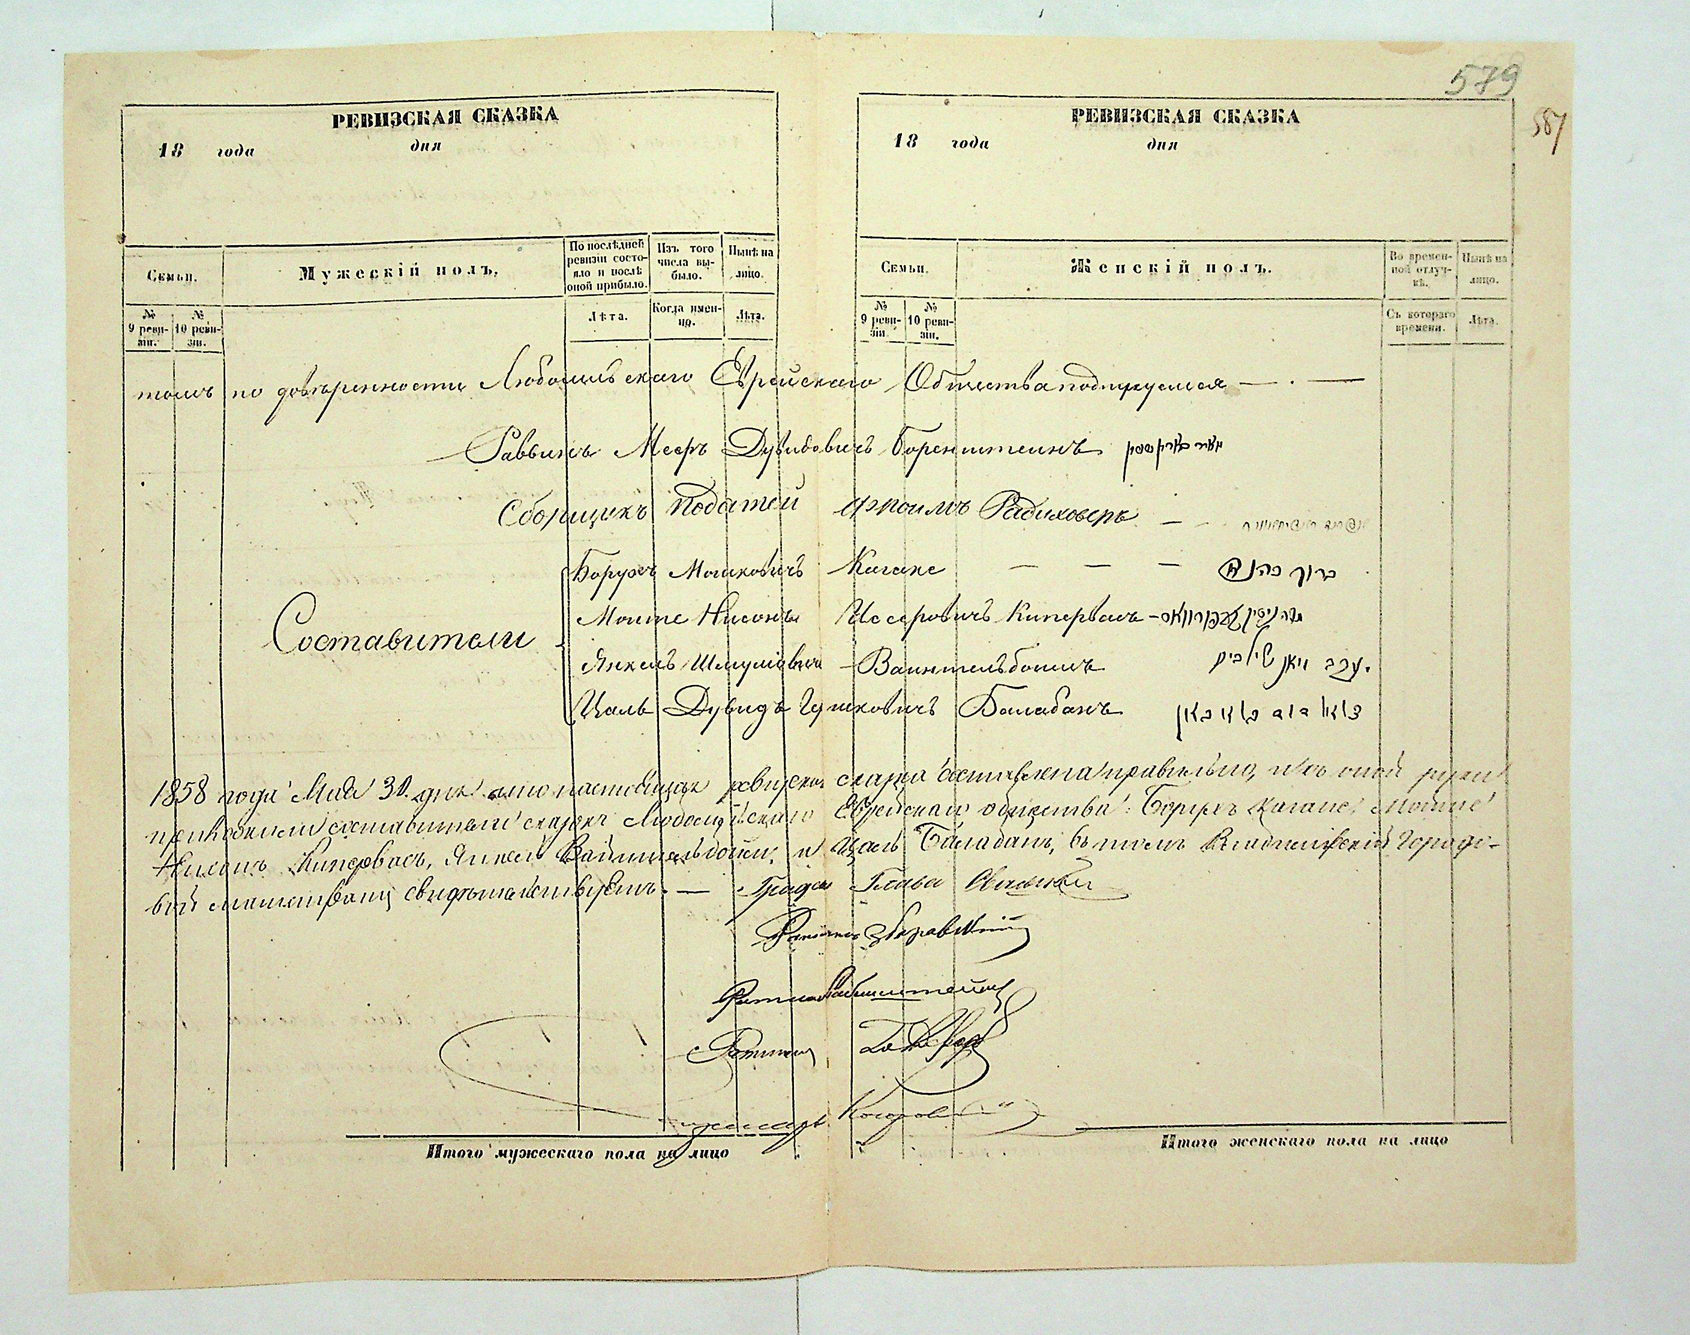 579
587
РЕВИЗСКАЯ СКАЗКА
18 года дня
Семьи.
Мужескій полъ.
По послѣдней ревизіи состояло и послѣ оной прибыло.
Изъ того числа выбыло.
Нынѣ на лицо.
№ 9 ревизіи.
№ 10 ревизіи.
Лѣта.
Когда именно.
Лѣта.
РЕВИЗСКАЯ СКАЗКА
18 года дня
Семьи.
Женскій полъ.
Во временной отлучкѣ.
Нынѣ на лицо.
№ 9 ревизіи.
№ 10 ревизіи.
Съ котораго времени.
Лѣта.
томъ по довѣренности Любомльскаго Еврейскаго Общества подпісуемся
Раввинъ Мееръ Дувидовичъ Боренштеинъ
Сборщикъ податей Фроимъ Радиховеръ
Составители
Борухъ Мошковичъ Кагане ברוך כהנא
Моште Нисонъ Иссеровичъ Кипервасъ
Янкель Шмулевичъ Ваинтельбоимъ
Цаль Дувидъ Гершковичъ Балабанъ
1858 года Мая 30 дня что настоящая ревизская сказка составлена правильно, и къ оной руки
приложили составители сказокъ Любомльскаго Еврейскаго общества: Борухъ Кагане, Мошке
Нисонъ Кипервасъ, Янкель Вайнтельбоймъ, и Цаль Балабанъ, въ томъ Владимірскій Городо-
вый магистратъ свидѣтельствуетъ. — Градск Глава
Ратманъ
Ратманъ
Ратманъ
Итого мужескаго пола на лицо
Итого женскаго пола на лицо